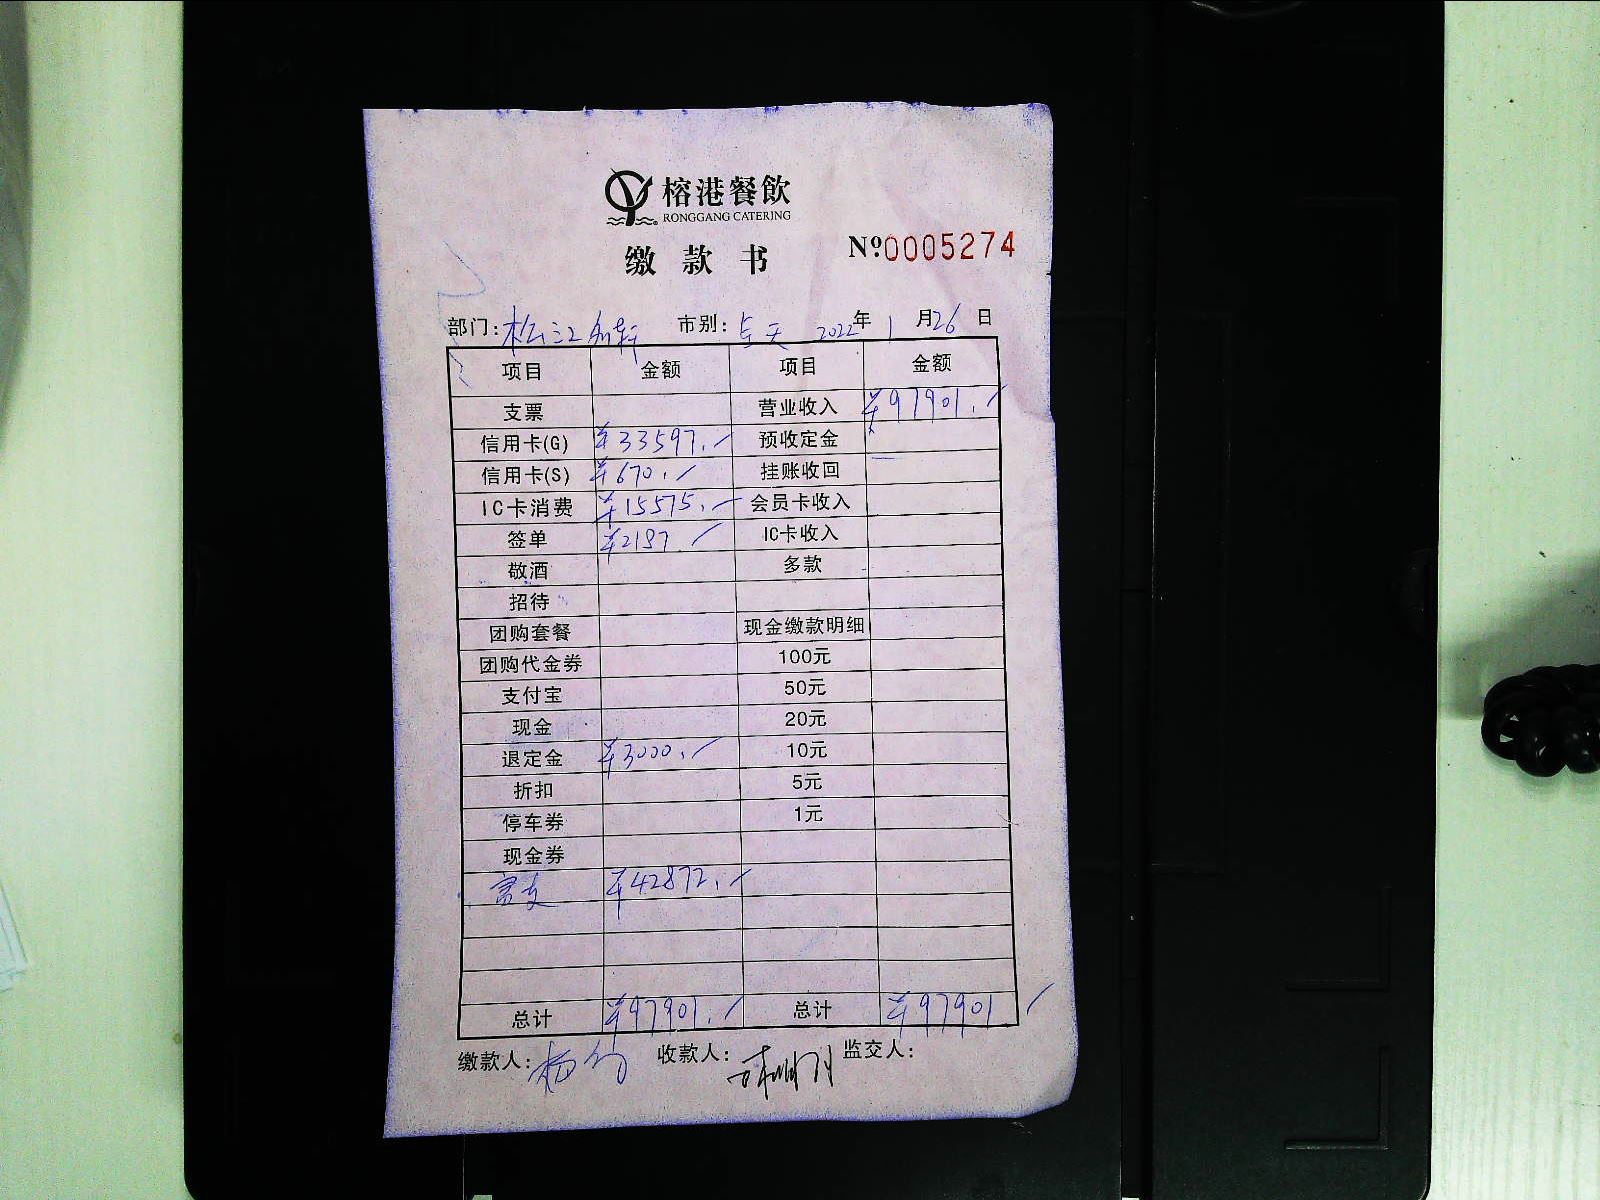 榕港餐飲
RONGGANG CATERING
缴款书 №0005274
部门: 松江 市别: 全天 2022年 1 月26日
项目 金额 项目 金额
支票 营业收入 ¥97901.
信用卡(G) ¥33597. 预收定金
信用卡(S) ¥670. 挂账收回
IC卡消费 ¥15575. 会员卡收入
签单 ¥2187. IC卡收入
敬酒 多款
招待
团购套餐 现金缴款明细
团购代金券 100元
支付宝 50元
现金 20元
退定金 ¥3000. 10元
折扣 5元
停车券 1元
现金券
¥42872.
总计 ¥97901. 总计 ¥97901
缴款人: 收款人: 监交人: